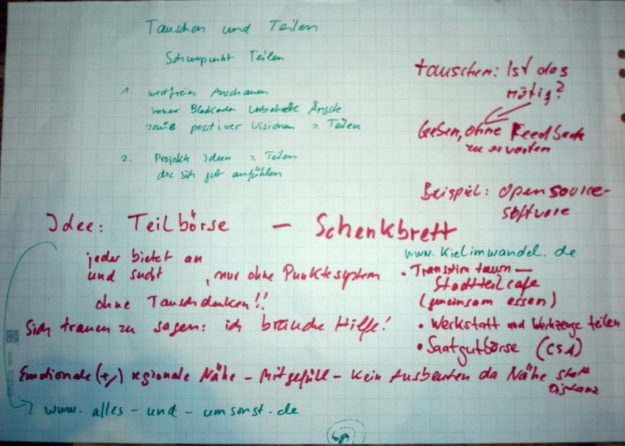 Tauschen und Teilen
Schwerpunkt Teilen
1. wertfreies Anschauen
innerer Blockaden Ängste
positiver Visionen > Teilen
2. Projekte Ideen > Teilen
die sich gut anfühlen
tauschen: Ist das
nötig?
Geben, ohne Feedback
zu erwarten
Beispiel: open source-
software
Idee: Teilbörse — Schenkbrett
jeder bietet an
und sucht , nur ohne Punktesystem
ohne Tauschdenken!!
Sich trauen zu sagen: ich brauche Hilfe!
www.kielimwandel.de
• Transition town —
Stadtteilcafe
(gemeinsam essen)
• Werkstatt und Werkzeuge teilen
• Saatgutbörse (CSA)
Emotionale (+/) regionale Nähe - Mitgefühl - Kein Ausbeuten da Nähe statt
Distanz
www.alles-und-umsonst.de